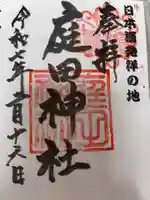 日本酒発祥の地
奉拝
庭田神社
令和六年二月十六日